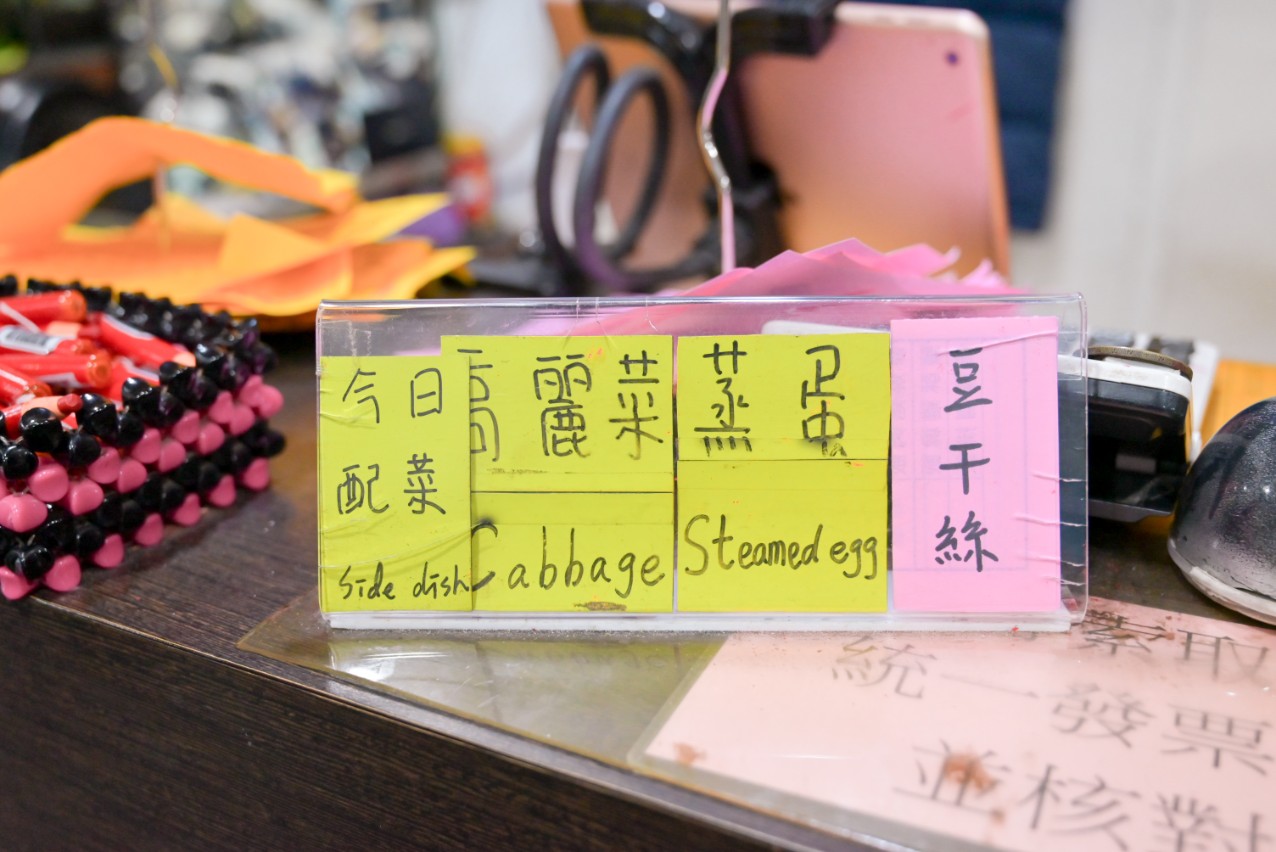 今日
配菜
Side dish
高麗菜
Cabbage
蒸蛋
Steamed egg
豆干絲
索取
統一發票
並核對